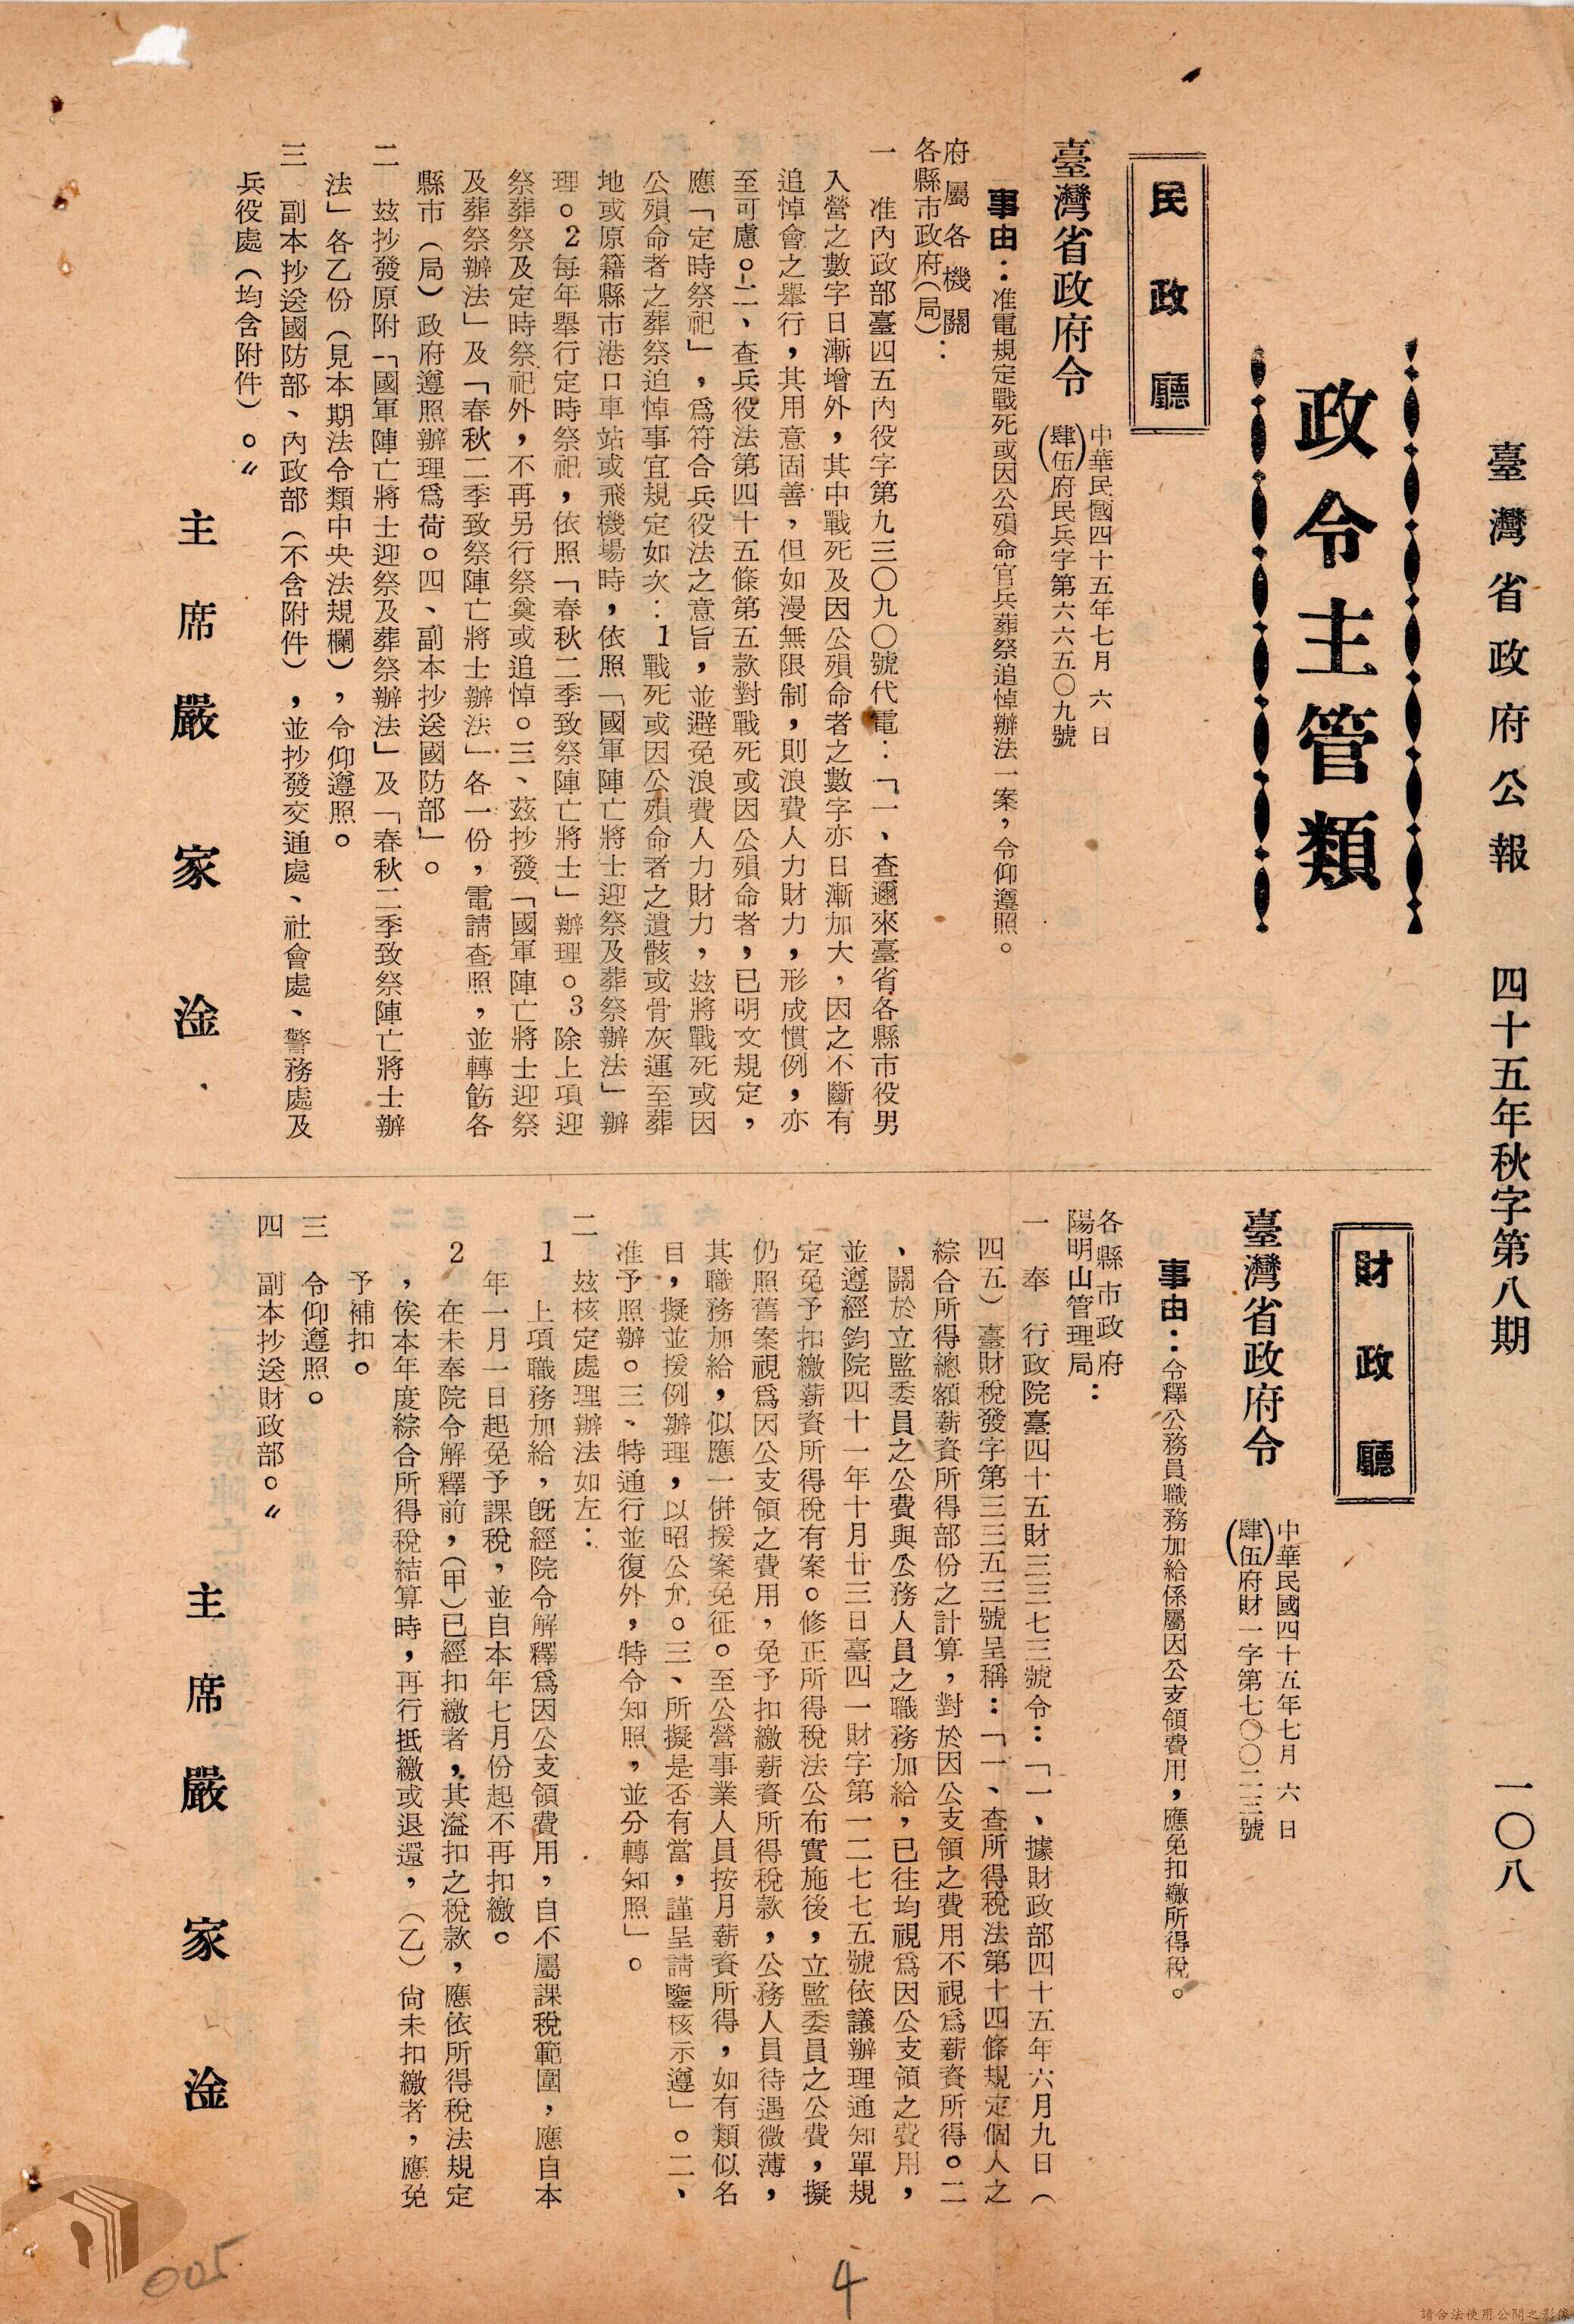 臺灣省政府公報　四十五年秋字第八期　一〇八
政令主管類
民政廳
臺灣省政府令
中華民國四十五年七月六日
(肆伍)府民兵字第六六五〇九號
事由：准電規定戰死或因公殞命官兵葬祭追悼辦法一案，令仰遵照。
府屬各機關
各縣市政府(局)：
一　准內政部臺四五內役字第九三〇九〇號代電：「一、查邇來臺省各縣市役男
入營之數字日漸增外，其中戰死及因公殞命者之數字亦日漸加大，因之不斷有
追悼會之舉行，其用意固善，但如漫無限制，則浪費人力財力，形成慣例，亦
至可慮。二、查兵役法第四十五條第五款對戰死或因公殞命者，已明文規定，
應「定時祭祀」，爲符合兵役法之意旨，並避免浪費人力財力，玆將戰死或因
公殞命者之葬祭追悼事宜規定如次：1戰死或因公殞命者之遺骸或骨灰運至葬
地或原籍縣市港口車站或飛機場時，依照「國軍陣亡將士迎祭及葬祭辦法」辦
理。2每年舉行定時祭祀，依照「春秋二季致祭陣亡將士」辦理。3除上項迎
祭葬祭及定時祭祀外，不再另行祭奠或追悼。三、玆抄發「國軍陣亡將士迎祭
及葬祭辦法」及「春秋二季致祭陣亡將士辦法」各一份，電請查照，並轉飭各
縣市（局）政府遵照辦理爲荷。四、副本抄送國防部」。
二　玆抄發原附「國軍陣亡將士迎祭及葬祭辦法」及「春秋二季致祭陣亡將士辦
法」各乙份（見本期法令類中央法規欄），令仰遵照。
三　副本抄送國防部、內政部（不含附件），並抄發交通處、社會處、警務處及
兵役處（均含附件）。〃
主席　嚴家淦
財政廳
臺灣省政府令
中華民國四十五年七月六日
(肆伍)府財一字第七〇〇二三號
事由：令釋公務員職務加給係屬因公支領費用，應免扣繳所得稅。
各縣市政府
陽明山管理局：
一　奉　行政院臺四十五財三三七三號令：「一、據財政部四十五年六月九日（
四五）臺財稅發字第三三五三號呈稱：「一、查所得稅法第十四條規定個人之
綜合所得總額薪資所得部份之計算，對於因公支領之費用不視爲薪資所得。二
、關於立監委員之公費與公務人員之職務加給，已往均視爲因公支領之費用，
並遵經鈞院四十一年十月廿三日臺四一財字第一二七七五號依議辦理通知單規
定免予扣繳薪資所得稅有案。修正所得稅法公布實施後，立監委員之公費，擬
仍照舊案視爲因公支領之費用，免予扣繳薪資所得稅款，公務人員待遇微薄，
其職務加給，似應一併援案免征。至公營事業人員按月薪資所得，如有類似名
目，擬並援例辦理，以昭公允。三、所擬是否有當，謹呈請鑒核示遵」。二、
准予照辦。三、特通行並復外，特令知照，並分轉知照」。
二　玆核定處理辦法如左：
1　上項職務加給，旣經院令解釋爲因公支領費用，自不屬課稅範圍，應自本
年一月一日起免予課稅，並自本年七月份起不再扣繳。
2　在未奉院令解釋前，(甲)已經扣繳者，其溢扣之稅款，應依所得稅法規定
，俟本年度綜合所得稅結算時，再行抵繳或退還，(乙)尙未扣繳者，應免
予補扣。
三　令仰遵照。
四　副本抄送財政部。〃
主席　嚴家淦
005
4
請合法使用公開之影像